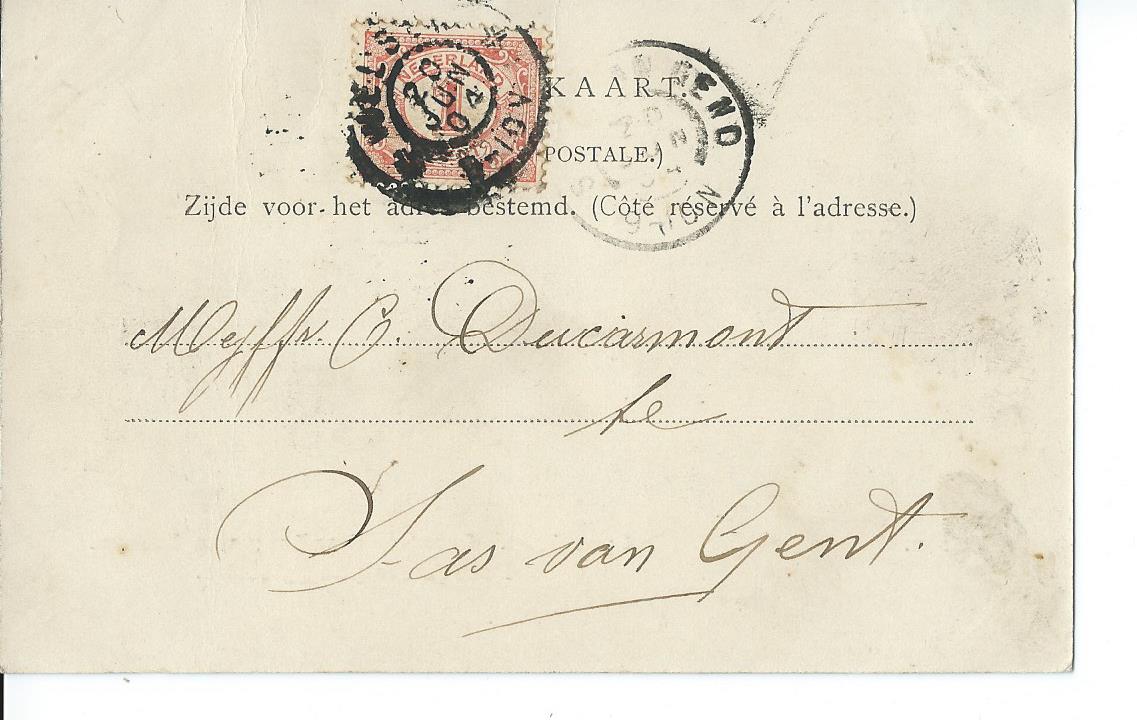 NEDERLAND
1
20 JUN 04
KAART.
POSTALE.)
Zijde voor het adres bestemd. (Côté réservé à l'adresse.)
Mejffr. C. Ducarmont
te
Sas van Gent.